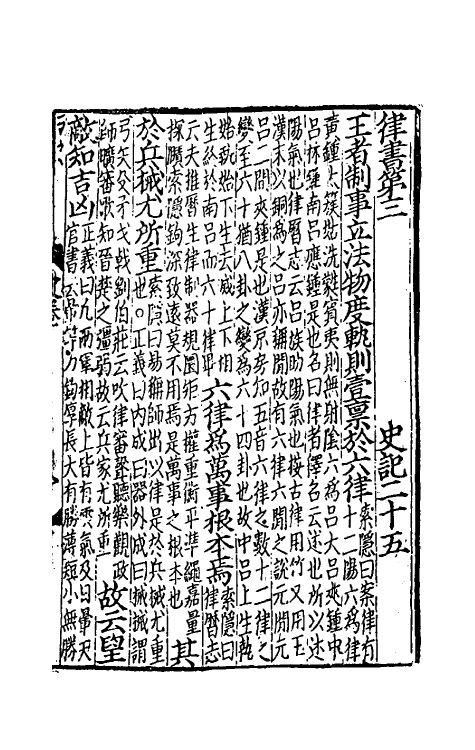 律書第三 史記二十五
王者制事立法物度軌則壹禀於六律 索隱曰案律有
十二陽六爲律
黃鍾太蔟姑洗蕤賓夷則無射隂六爲吕大吕夾鍾中
吕林鍾南吕應鍾是也名曰律者釋名云述也所以述
陽氣也律曆志云吕旅助陽氣也按古律用竹又用玉
漢末以銅爲之吕亦稱閒故有六律六閒之說元閒元
吕二間夾鍾是也漢京房知五音六律之數十二律之
變至六十猶八卦之變爲六十四卦也故中吕上生執
始執始下生去滅上下相
生終於南吕而六十律畢 六律爲萬事根本焉 索隱曰
律曆志
云夫推曆生律制器規圓矩方權重衡平準繩嘉量
探賾索隱鉤深致遠莫不用焉是萬事之根本也 其
於兵械尤所重 索隱曰易稱師出以律是於兵械尤重
也。正義曰内成曰器外成曰械械謂
弓矢殳矛戈戟劉伯莊云吹律審聲聽樂觀政
師曠審歌知晉楚之彊弱故云兵家尤所重 故云望
敵知吉凶 正義曰凡兩軍相敵上皆有雲氣及日暈天
官書云暈等力鈞厚長大有勝薄短小無勝